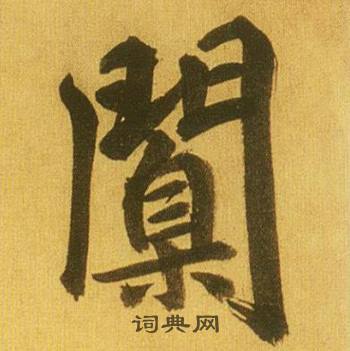 闐
词典网